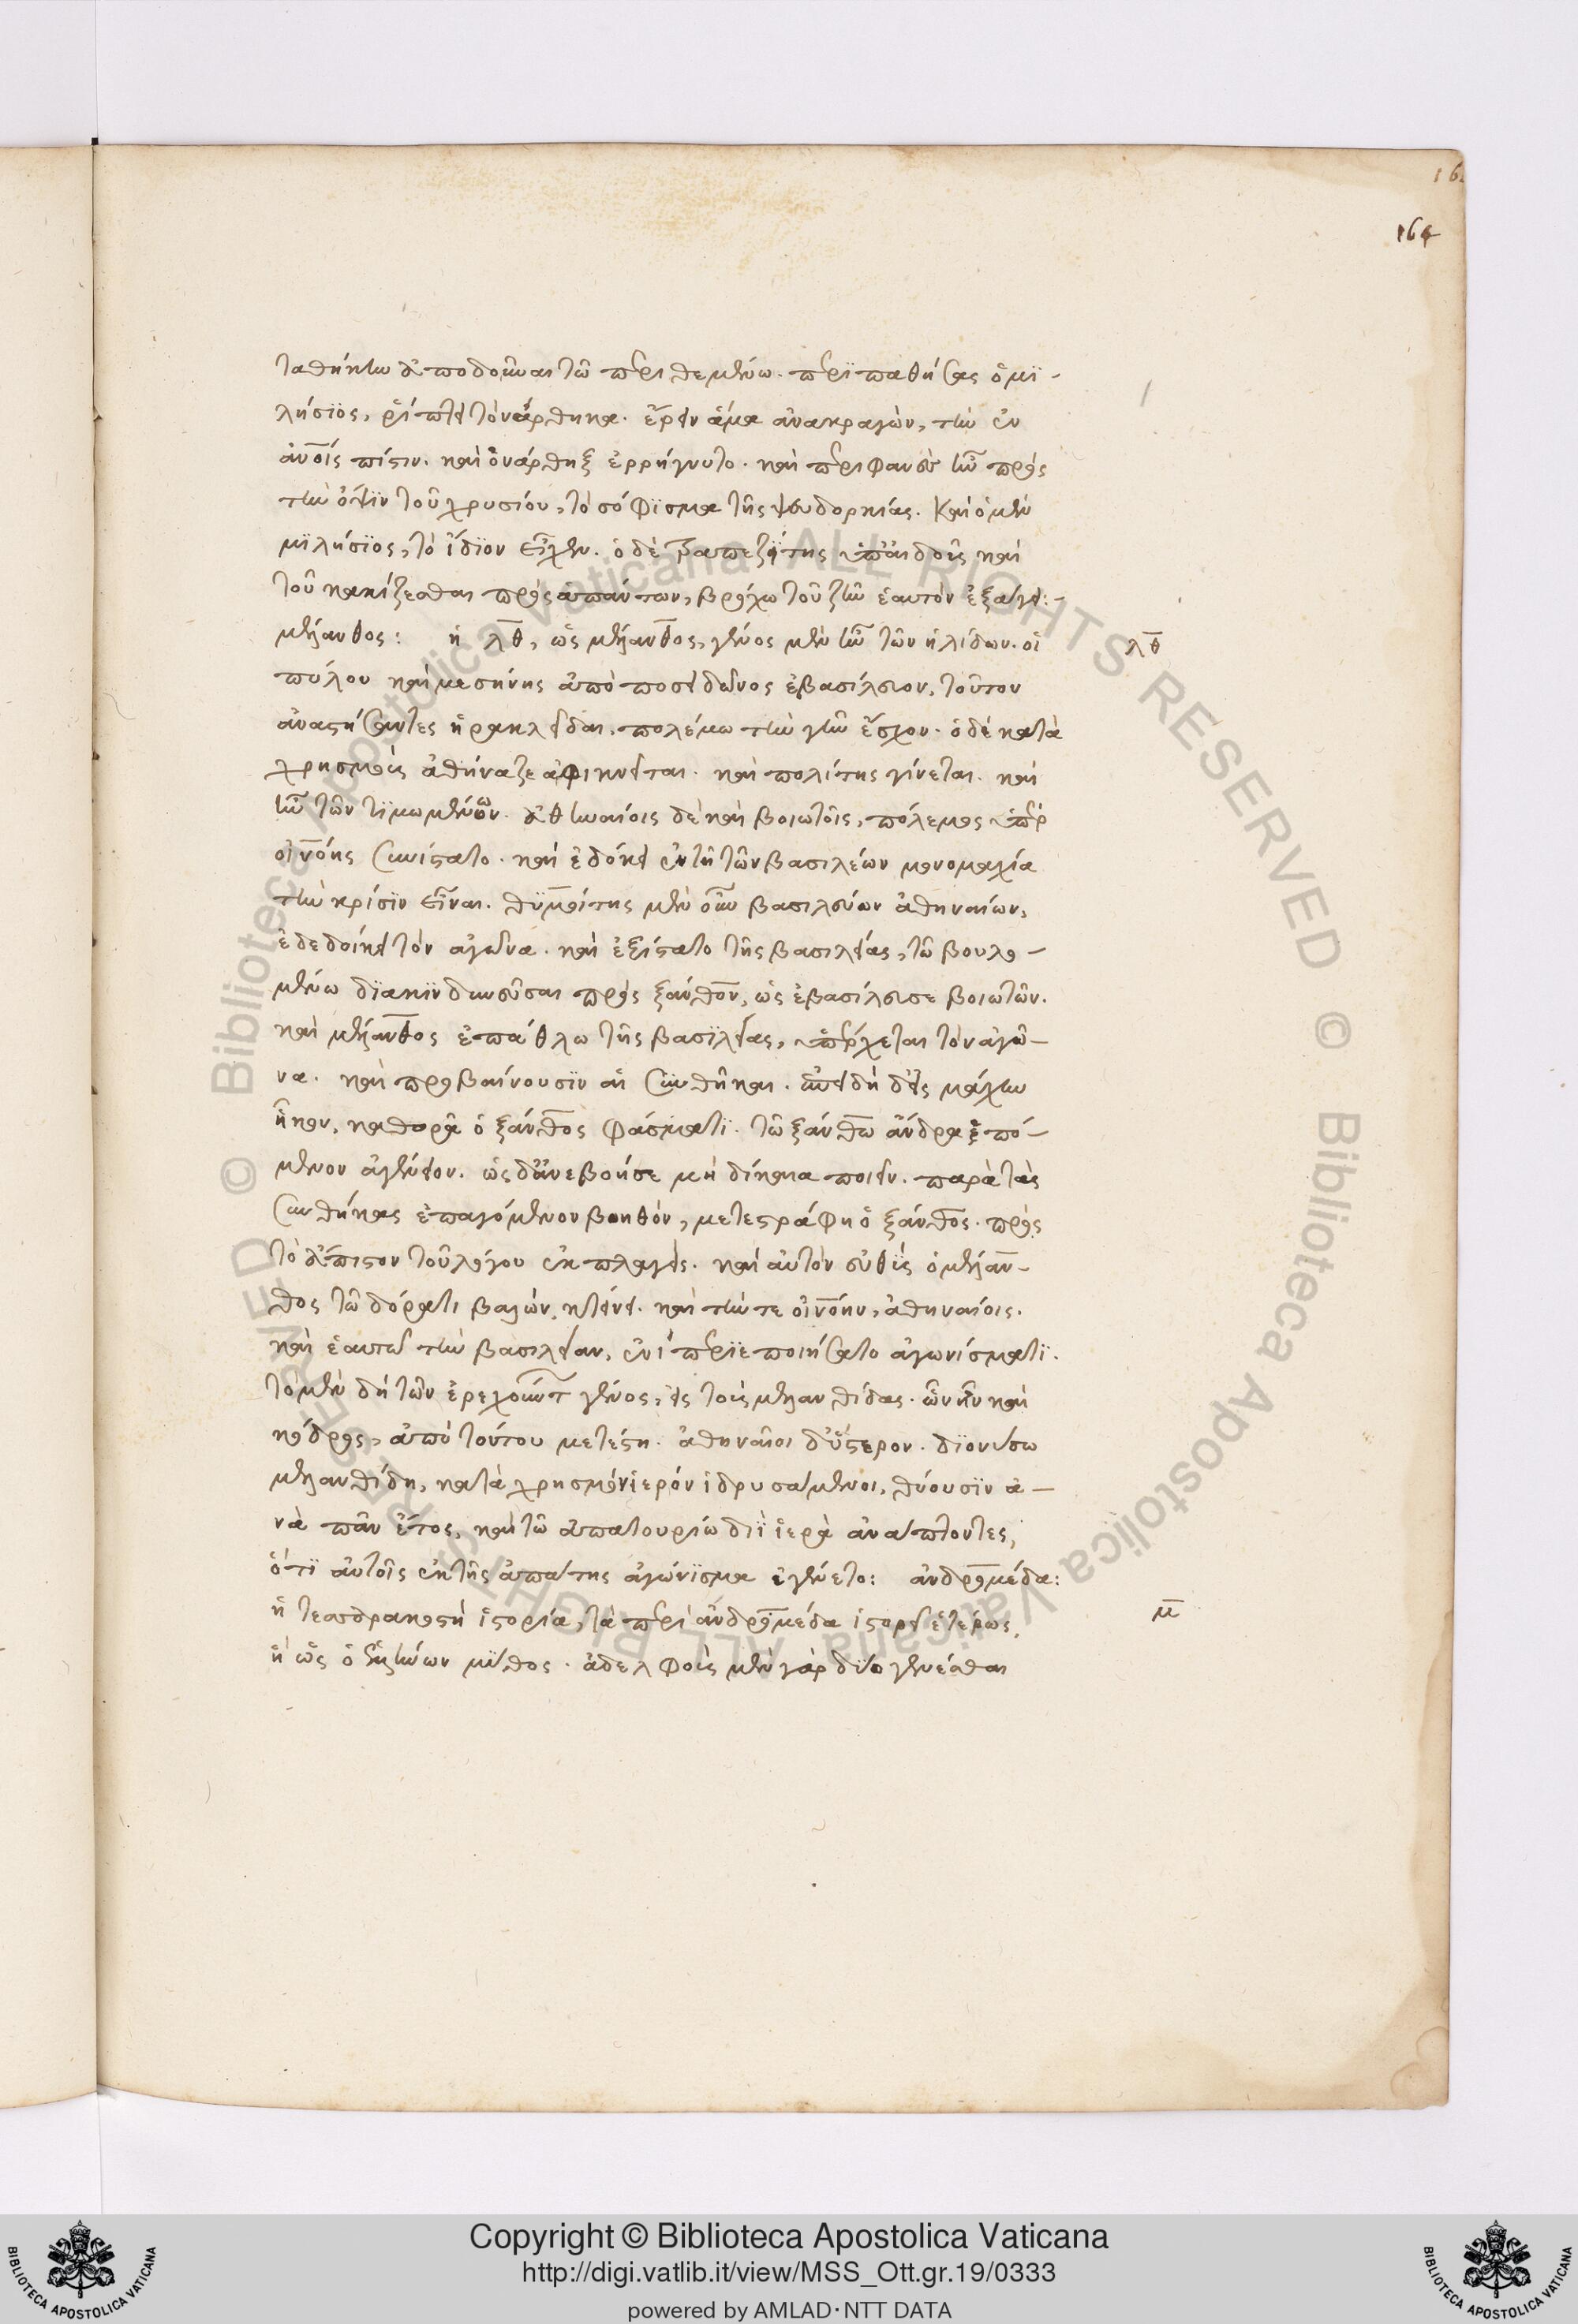 164
ταθήκην ἀποδοῦναι τῶ περιθεμένω. περιπαθήσας ὁ μϊ-
λήσϊος, ῥίπτει τὸν νάρθηκα. εὔρειν ἅμα ἀνακραγὼν, τὴν ἐν
αὐτοῖς πίστιν. καὶ ὁ νάρθηξ ἐρρήγνυτο. καὶ περιφανὲς ἦν πρὸς
τὴν ὄψιν τοῦ χρυσίου, τὸ σόφϊσμα τῆς ψευδορκίας. Καὶ ὁ μὲν
μϊλήσϊος, τὸ ἴδϊον εἶχεν. ὁ δὲ τραπεζΐτης ὑπ' αἰδοῦς καὶ
τοῦ κακίζεσθαι πρὸς ἁπάντων, βρόχω τοῦ ζῆν ἑαυτὸν ἐξάγει:-
μέλανθος: ἡ λθ, ὡς μέλανθος, γένος μὲν ἦν τῶν νηλίδων. οἳ
λθ
πύλου καὶ μεσήνης ἀπὸ ποσειδῶνος ἐβασίλευον. τοῦτον
ἀναστήσαντες ἡρακλεῖδαι, πολέμω τὴν γῆν ἔσχον. ὁ δὲ κατὰ
χρησμοὺς ἀθήναζε ἀφικνεῖται. καὶ πολίτης γίνεται. καὶ
ἦν τῶν τϊμωμένων. ἀθηναίοις δὲ καὶ βοιωτοῖς, πόλεμος ὑπὲρ
οἰνόης συνίστατο. καὶ ἐδόκει ἐν τῆ τῶν βασιλέων μονομαχία
τὴν κρίσϊν εἶναι. θϋμοίτης μὲν οὖν βασιλεύων ἀθηναίων,
ἐδεδοίκει τὸν ἀγῶνα. καὶ ἐξίστατο τῆς βασιλείας, τῶ βουλο-
μένω δϊακϊνδυνεῦσαι πρὸς ξάνθον, ὡς ἐβασίλευσε βοιωτῶν.
καὶ μέλανθος ἐπάθλω τῆς βασϊλείας, ὑπέρχεται τὸν ἀγῶ-
να. καὶ προβαίνουσϊν αἱ συνθῆκαι. ἐπεὶ δὴ εἰς μάχην
ἧκον, καθορᾶ ὁ ξάνθος φάσματϊ. τῶ ξάνθω ἄνδρα ἑπό-
μενον ἀγένειον. ὡς δ' ἀνεβόησε μὴ δίκαια ποιεῖν. παρὰ τὰς
συνθήκας ἐπαγόμενον βοηθόν, μετεστράφη ὁ ξάνθος. πρὸς
τὸ ἄπιστον τοῦ λόγου ἐκπλαγείς. καὶ αὐτὸν εὐθὺς ὁ μέλαν-
θος τῶ δόρατι βαλὼν, κτείνει. καὶ τήν τε οἰνόην, ἀθηναίοις.
καὶ ἑαυτῶ τὴν βασιλείαν, ἑνὶ περϊεποιήσατο ἀγωνίσματϊ.
τὸ μὲν δὴ τῶν ἐρεχθειδῶν γένος, εἰς τοὺς μελανθίδας. ὧν ἦν καὶ
κόδρος, ἀπὸ τούτου μετέστη. ἀθηναῖοι δ' ὕστερον. δϊονύσω
μελανθίδη, κατὰ χρησμὸν ἱερὸν ἱδρυσάμενοι, θύουσϊν ἀ-
νὰ πᾶν ἔτος, καὶ τῶ ἀπατουρίω διῒ ἱερὰ ἀνάπτοντες,
ὅτϊ αὐτοῖς ἐκ τῆς ἀπάτης ἀγώνϊσμα ἐγένετο: ἀνδρομέδα:
ἡ τεσσαρακοστὴ ἱστορία, τὰ περὶ ἀνδρομέδα ἱστορεῖ ἑτέρως,
μ
ἢ ὡς ὁ ἑλλήνων μῦθος. ἀδελφοὺς μὲν γὰρ δύο γενέσθαι
Copyright © Biblioteca Apostolica Vaticana
http://digi.vatlib.it/view/MSS_Ott.gr.19/0333
powered by AMLAD·NTT DATA